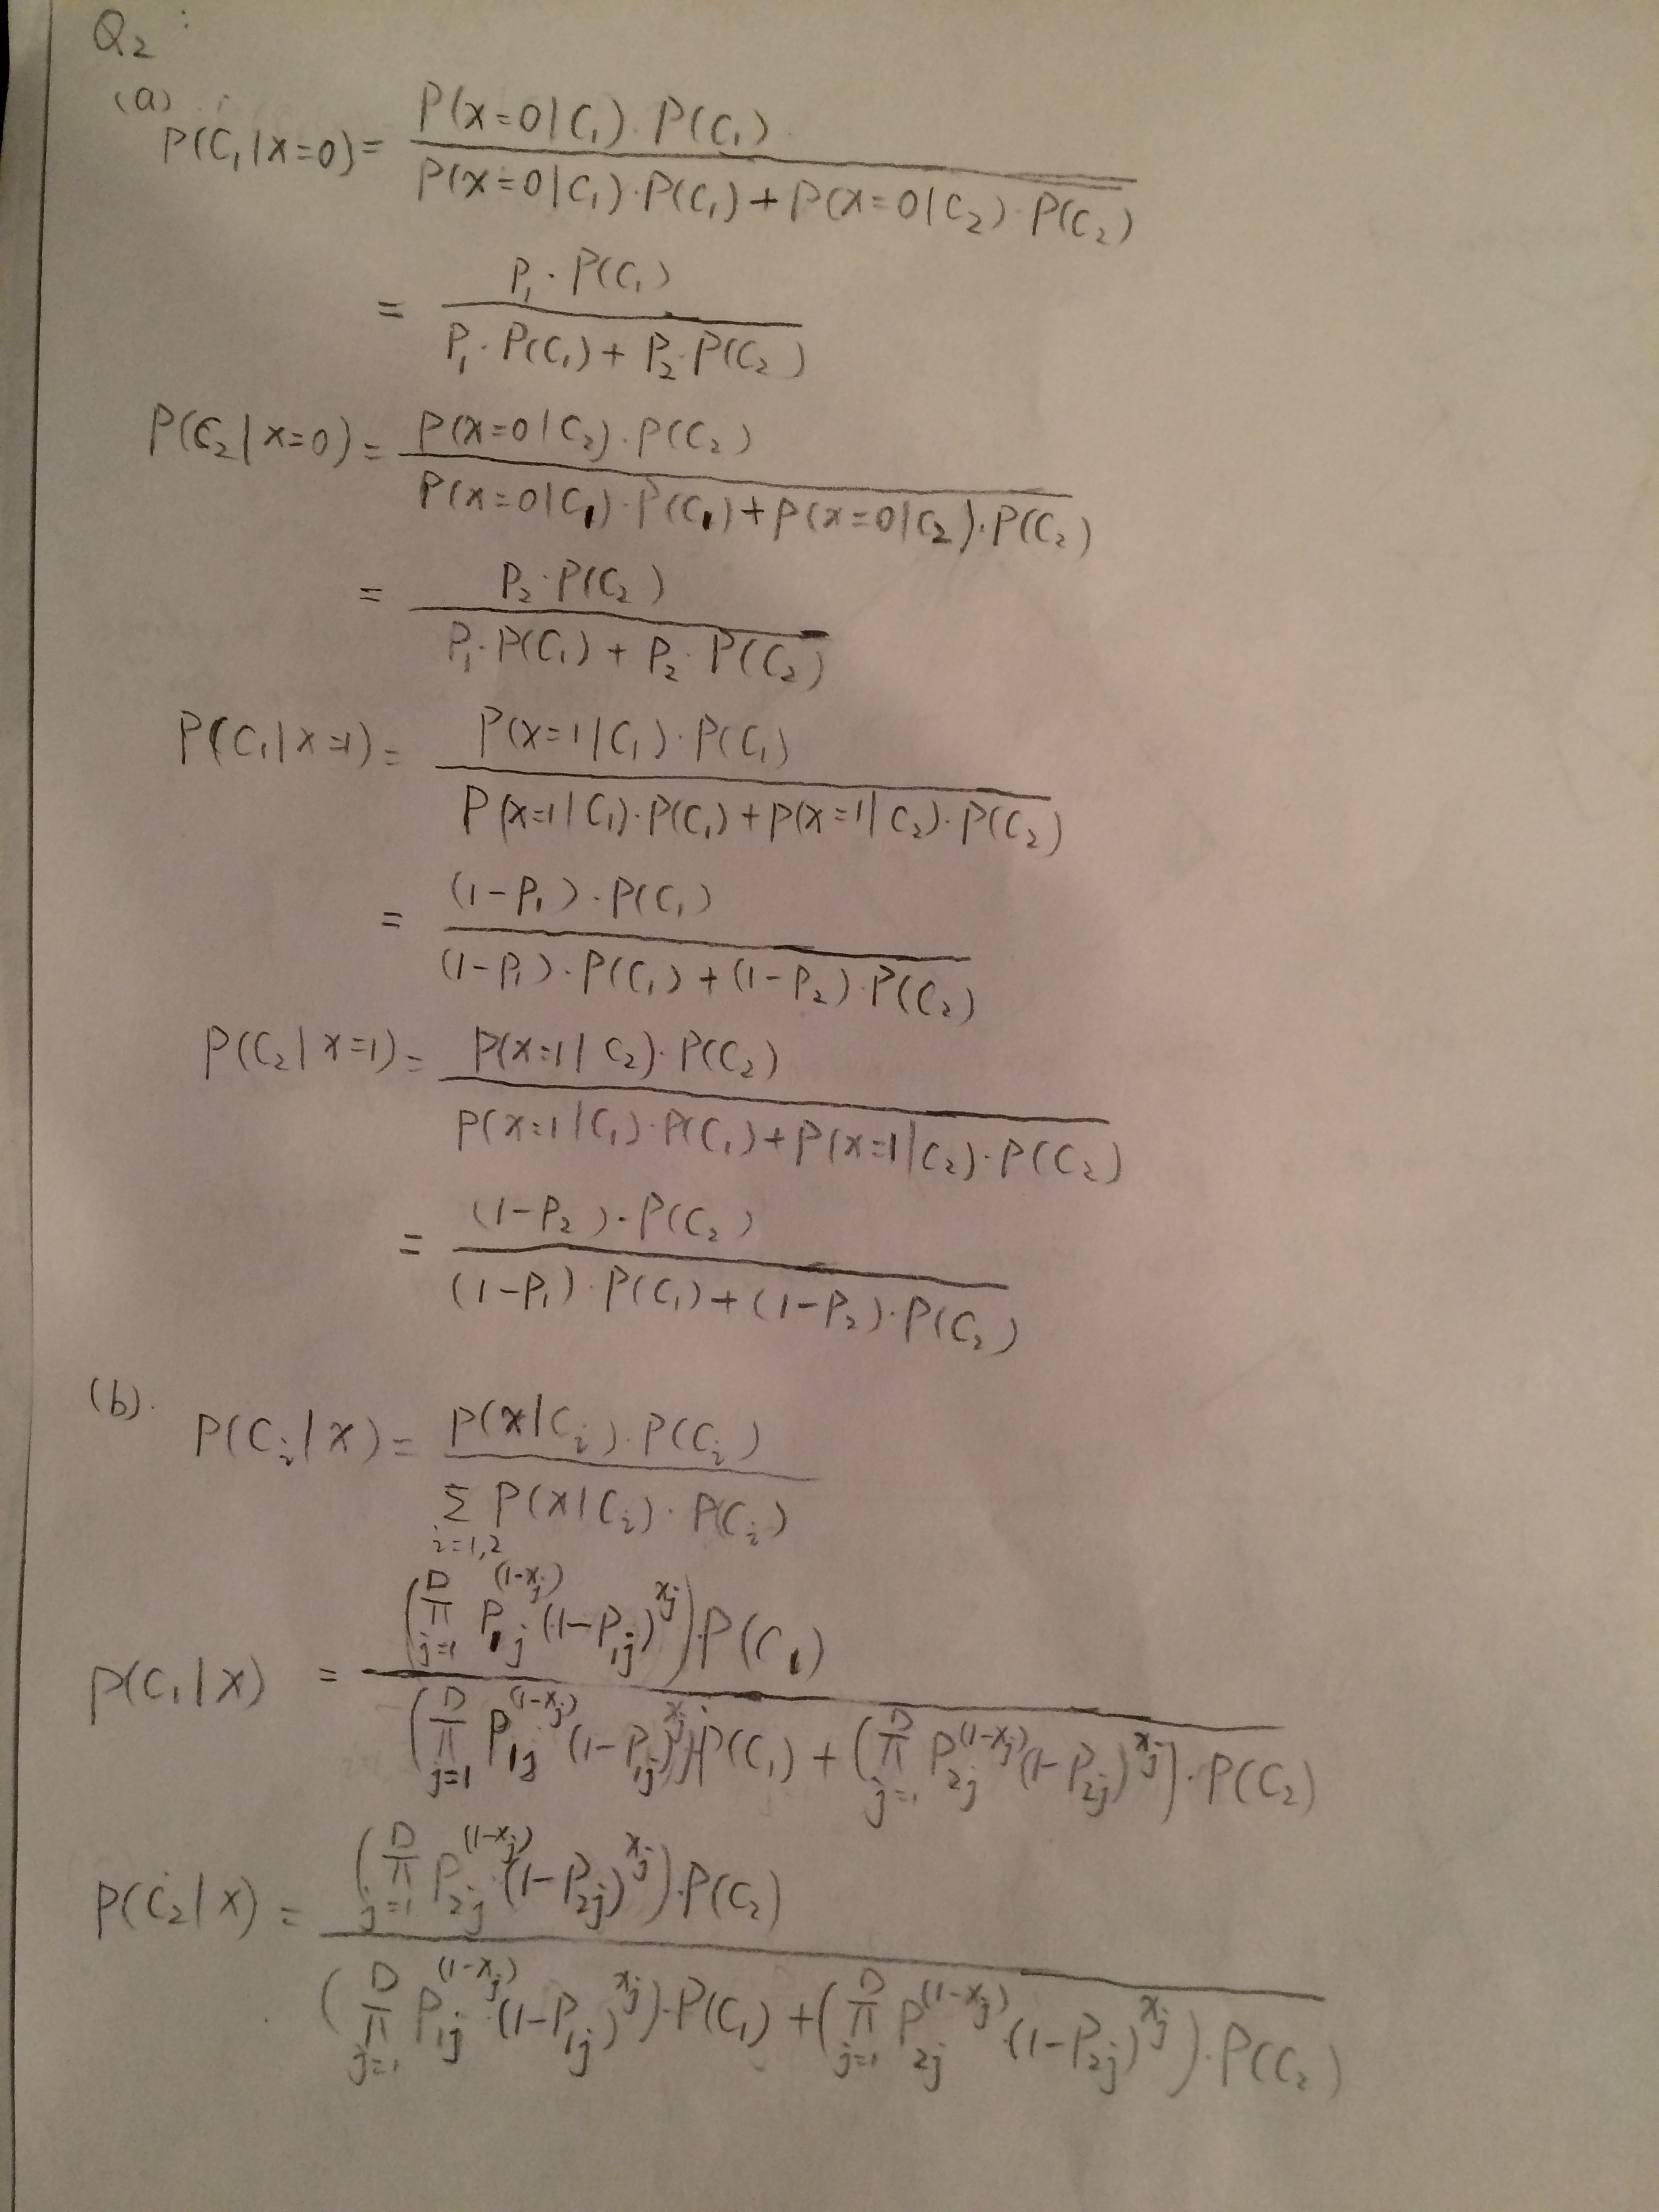 Q₂ :
(a)
P(C₁|x=0) = P(x=0|C₁)·P(C₁) / P(x=0|C₁)·P(C₁)+P(x=0|C₂)·P(C₂)
= P₁·P(C₁) / P₁·P(C₁)+P₂·P(C₂)
P(C₂|x=0) = P(x=0|C₂)·P(C₂) / P(x=0|C₁)·P(C₁)+P(x=0|C₂)·P(C₂)
= P₂·P(C₂) / P₁·P(C₁)+P₂·P(C₂)
P(C₁|x=1) = P(x=1|C₁)·P(C₁) / P(x=1|C₁)·P(C₁)+P(x=1|C₂)·P(C₂)
= (1-P₁)·P(C₁) / (1-P₁)·P(C₁)+(1-P₂)·P(C₂)
P(C₂|x=1) = P(x=1|C₂)·P(C₂) / P(x=1|C₁)·P(C₁)+P(x=1|C₂)·P(C₂)
= (1-P₂)·P(C₂) / (1-P₁)·P(C₁)+(1-P₂)·P(C₂)
(b). P(C_i|x) = P(x|C_i)·P(C_i) / Σ_{i=1,2} P(x|C_i)·P(C_i)
P(C₁|x) = (π_{j=1}^{D} P_{1j}^{(1-x_j)} (1-P_{1j})^{x_j})·P(C₁) / (π_{j=1}^{D} P_{1j}^{(1-x_j)} (1-P_{1j})^{x_j})·P(C₁) + (π_{j=1}^{D} P_{2j}^{(1-x_j)} (1-P_{2j})^{x_j})·P(C₂)
P(C₂|x) = (π_{j=1}^{D} P_{2j}^{(1-x_j)} (1-P_{2j})^{x_j})·P(C₂) / (π_{j=1}^{D} P_{1j}^{(1-x_j)}·(1-P_{1j})^{x_j})·P(C₁) + (π_{j=1}^{D} P_{2j}^{(1-x_j)}·(1-P_{2j})^{x_j})·P(C₂)